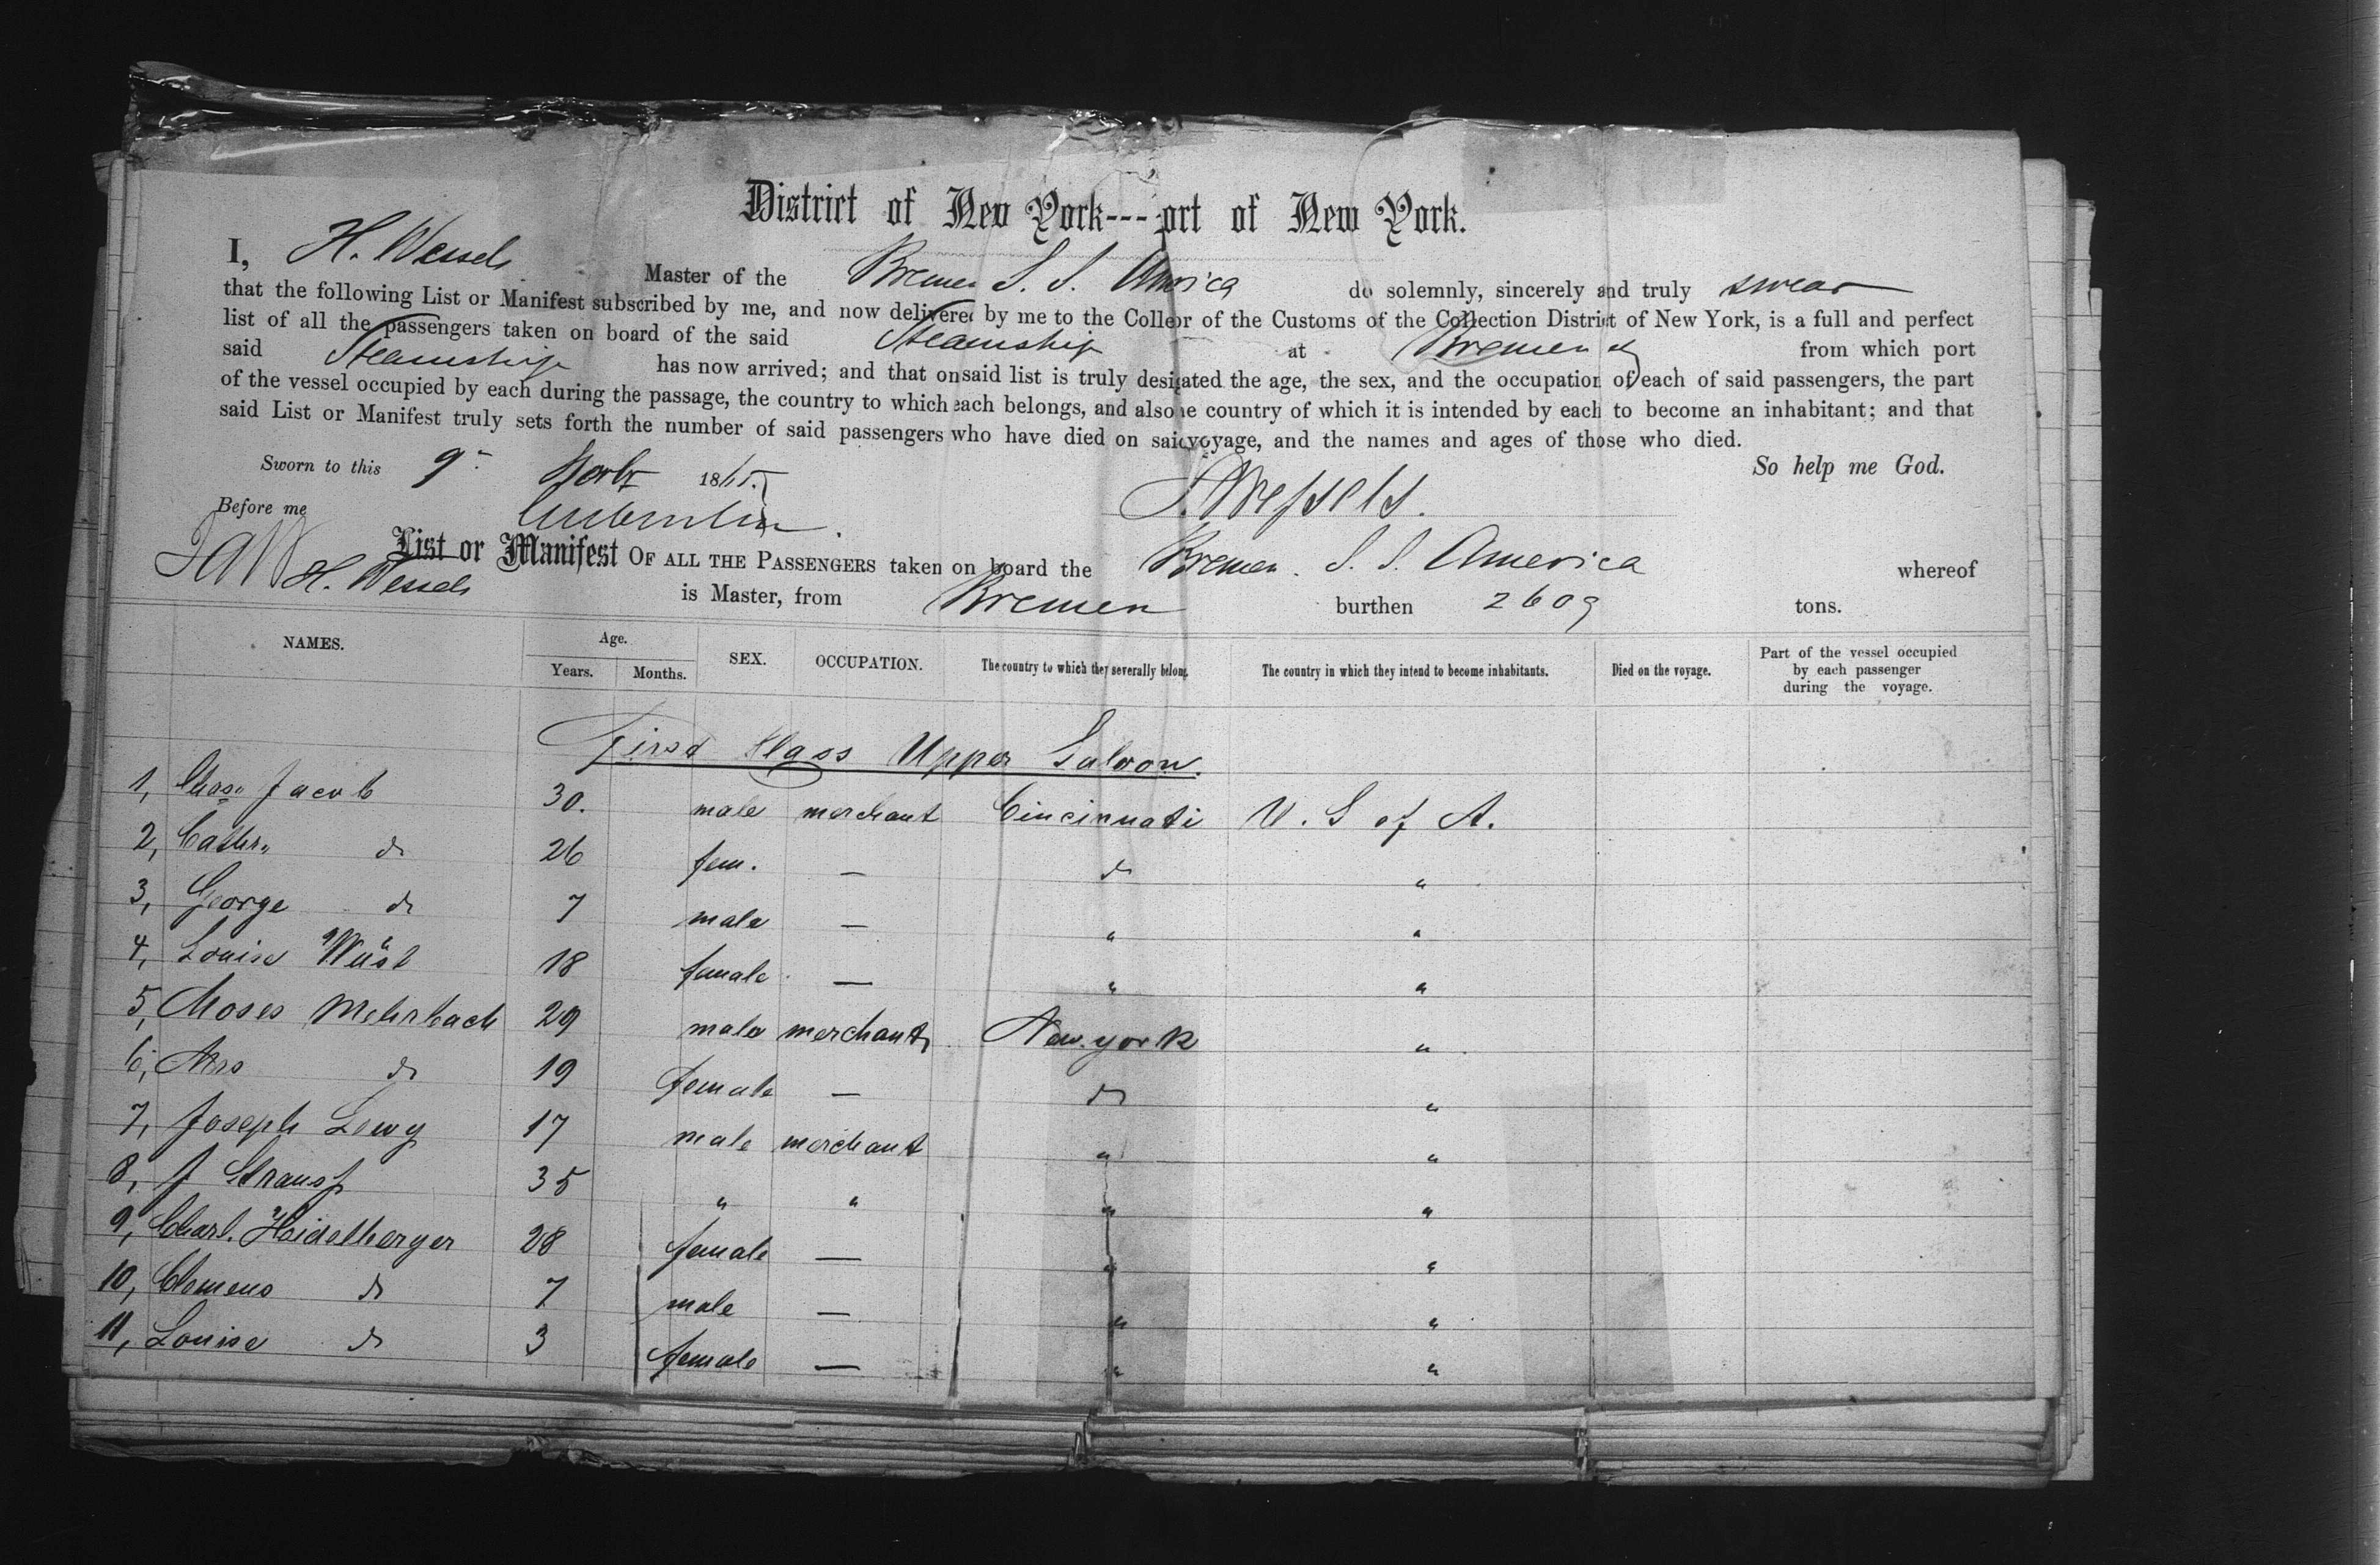 District of New York---ort of New York.
I, H. Wessels Master of the Bremen S. S. America do solemnly, sincerely and truly swear
that the following List or Manifest subscribed by me, and now delivered by me to the Colleor of the Customs of the Collection District of New York, is a full and perfect
list of all the passengers taken on board of the said Steamship at Bremen from which port
said Steamship has now arrived; and that on said list is truly desigated the age, the sex, and the occupation of each of said passengers, the part
of the vessel occupied by each during the passage, the country to which each belongs, and also e country of which it is intended by each to become an inhabitant; and that
said List or Manifest truly sets forth the number of said passengers who have died on said voyage, and the names and ages of those who died.
Sworn to this 9 1865. So help me God.
Before me H. Wessels.
List or Manifest OF ALL THE PASSENGERS taken on board the Bremen. S. S. America whereof
H. Wessels is Master, from Bremen burthen 2609 tons.
NAMES. Age. Years. Months. SEX. OCCUPATION. The country to which they severally belong. The country in which they intend to become inhabitants. Died on the voyage. Part of the vessel occupied by each passenger during the voyage.
First Klass Upper Saloon.
1, Chas. Jacob 30. male merchant Cincinnati U. S of A.
2, Cathr. do 26 fem. — do "
3, George do 7 male — " "
4, Louise Wüst 18 female — " "
5, Moses Mehrbach 29 male merchant New-york "
6, Mrs do 19 female — do "
7, Joseph Lewy 17 male merchant " "
8, J Strauss 35 " " " "
9, Charl. Heidelberger 28 female — " "
10, Clemens do 7 male — " "
11, Louise do 3 female — " "